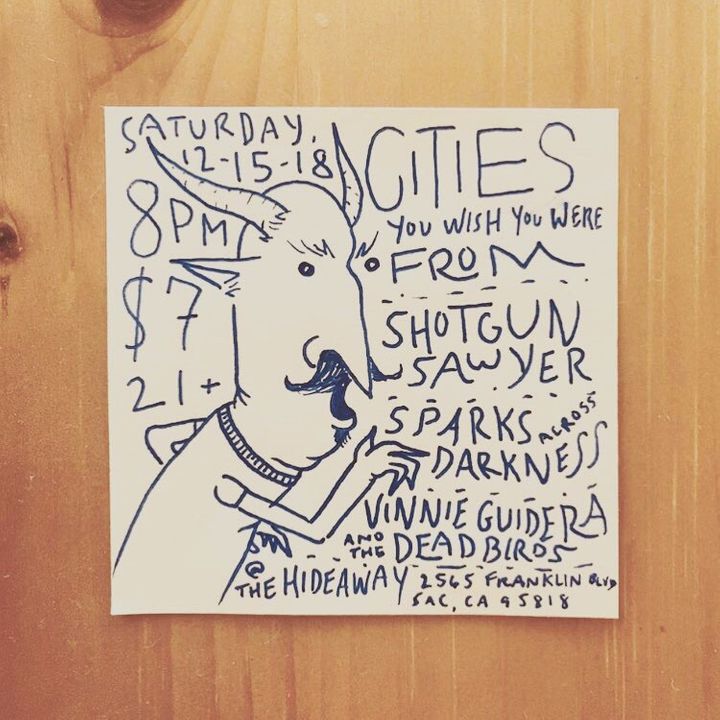 SATURDAY,
12-15-18
8PM
$7
21+
CITIES
YOU WISH YOU WERE
FROM
SHOTGUN
SAWYER
SPARKS ACROSS
DARKNESS
VINNIE GUIDERA
AND THE DEAD BIRDS
@
THE HIDEAWAY 2565 FRANKLIN BLVD
SAC, CA 95818